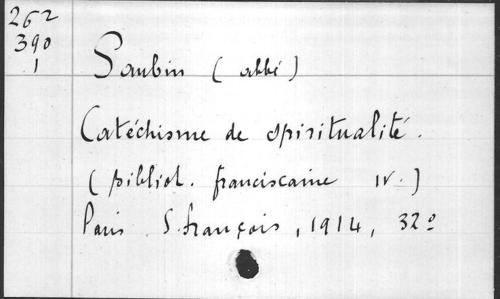 262
390
1
Saubin (abbé)
Catéchisme de spiritualité.
(bibliot. franciscaine IV.)
Paris S. françois, 1914, 32º